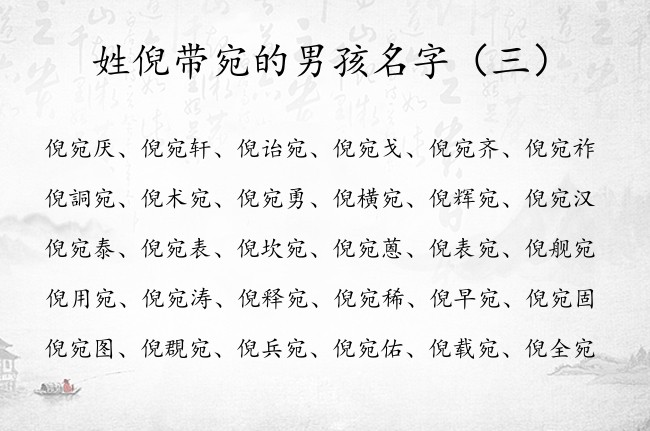 姓倪带宛的男孩名字（三）
倪宛厌、倪宛轩、倪诒宛、倪宛戈、倪宛齐、倪宛祚
倪詞宛、倪术宛、倪宛勇、倪横宛、倪辉宛、倪宛汉
倪宛泰、倪宛表、倪坎宛、倪宛蒽、倪表宛、倪舰宛
倪用宛、倪宛涛、倪释宛、倪宛稀、倪早宛、倪宛固
倪宛图、倪覩宛、倪兵宛、倪宛佑、倪载宛、倪全宛